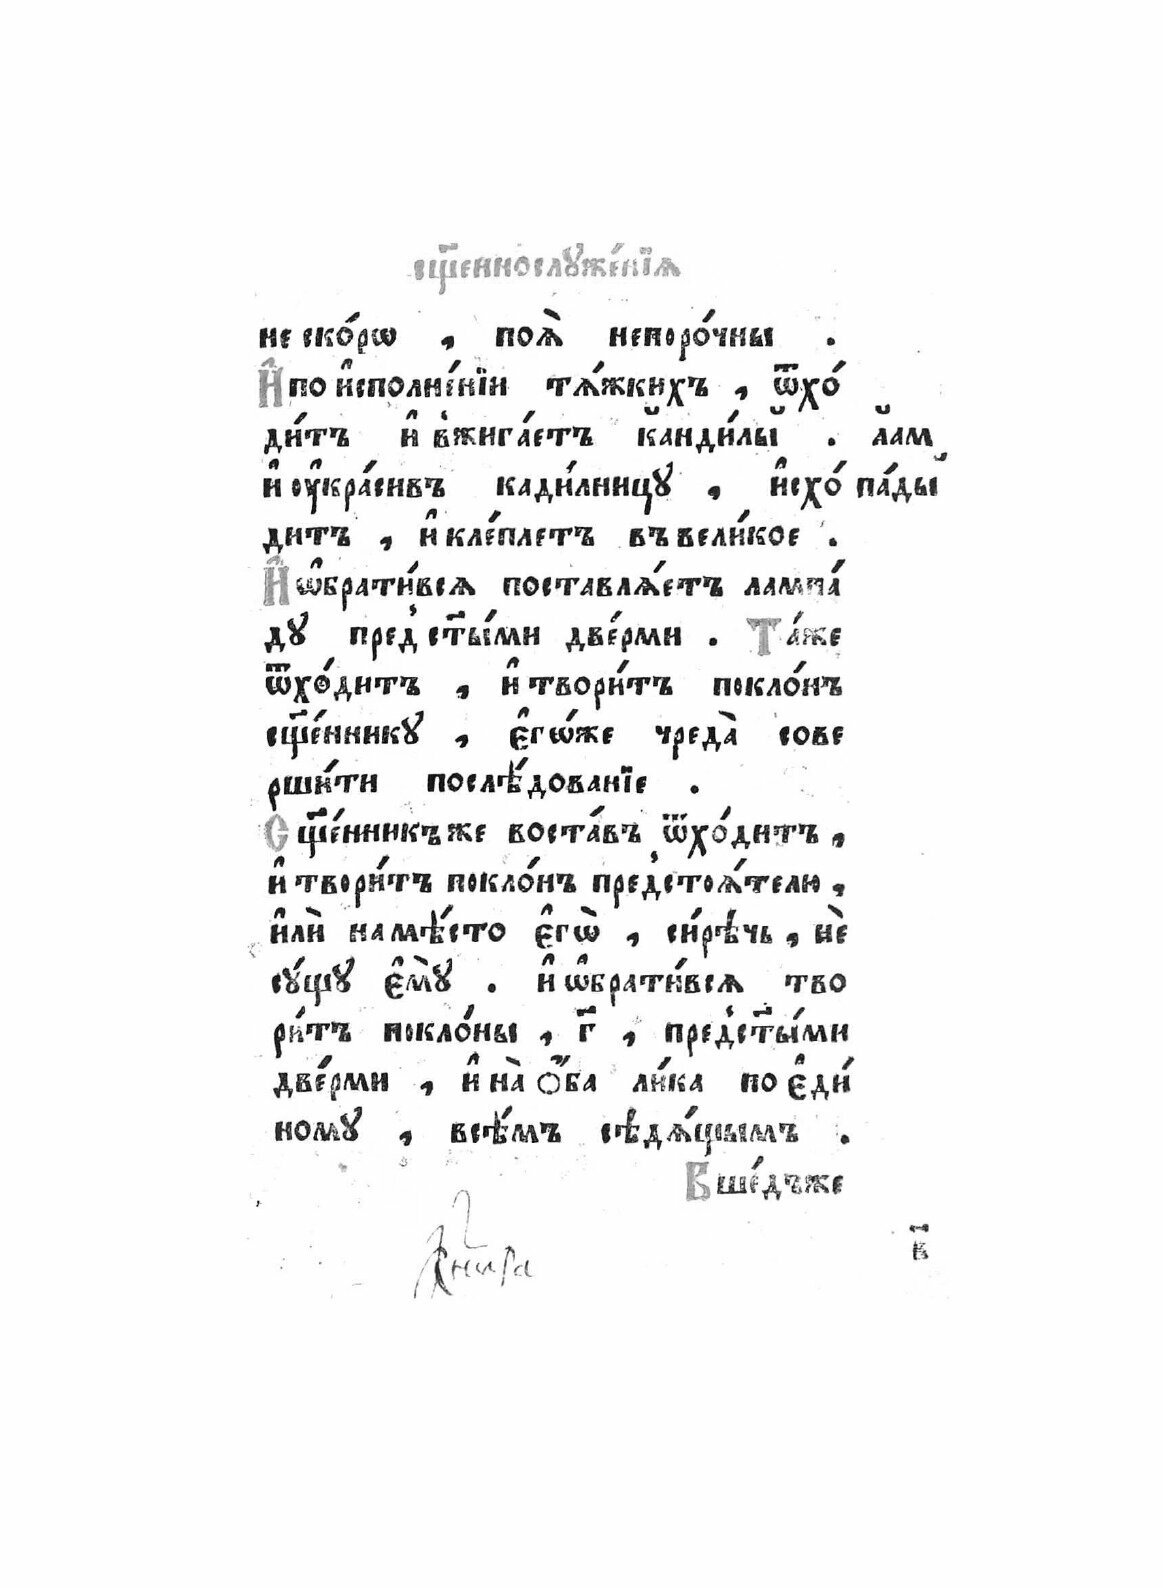 сщ҃еннослꙋже́нїѧ
не ско́рѡ , поѧ̀ непоро́чны .
И҆ по и҆сполне́нїи тѧ́жкихъ , ѿхо́
ди́тъ и҆ вжига́етъ канди́лы . лам
и҆ оу҆кра́сивъ кади́лницꙋ , и҆схо́ па́ды
дитъ , и҆ кле́плетъ въ вели́кое .
И҆ ѡ҆брати́всѧ поставлѧ́етъ лампа́
дꙋ пред̾ ст҃ы́ми две́рми . Та́же
ѿхо́дитъ , и҆ твори́тъ покло́нъ
сщ҃е́нникꙋ , є҆гѡ́же чреда̀ сове
рши́ти послѣ́дованїе .
Сщ҃е́нникъ же воста́въ ѿхо́дитъ ,
и҆ твори́тъ покло́нъ пред̾стоѧ́телю ,
и҆лѝ на мѣ́сто є҆гѡ̀ , си́рѣчь , нѐ
сꙋ́щꙋ є҆мꙋ̀ . И҆ ѡ҆брати́всѧ тво
ри́тъ покло́ны , г҃ , пред̾ ст҃ы́ми
две́рми , и҆ на̀ ѻ҆́ба ли́ка по є҆ди́
номꙋ , всѣ́мъ сѣдѧ́щымъ .
Вше́дъ же
в҃і